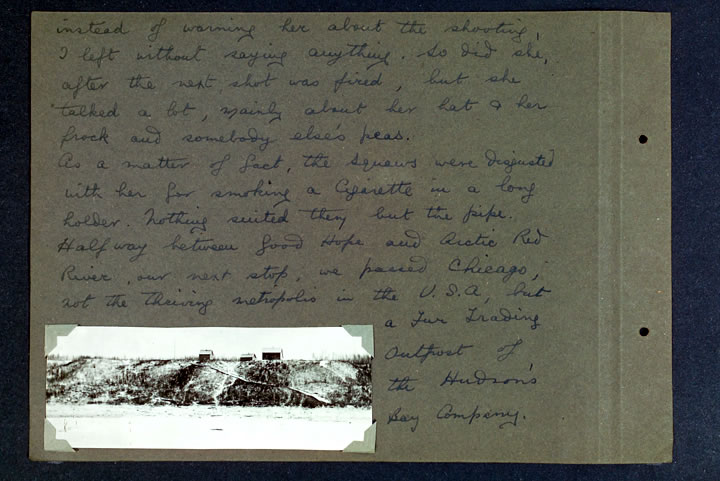 instead of warning her about the shooting,
I left without saying anything. So did she,
after the next shot was fired, but she
talked a lot, mainly about her hat & her
frock and somebody else's peas.
As a matter of fact, the squaws were disgusted
with her for smoking a Cigarette in a long
holder. Nothing suited them but the pipe.
Halfway between Good Hope and Arctic Red
River, our next stop, we passed Chicago,
not the thriving metropolis in the U.S.A, but
a Fur Trading
Outpost of
the Hudson's
Bay Company.